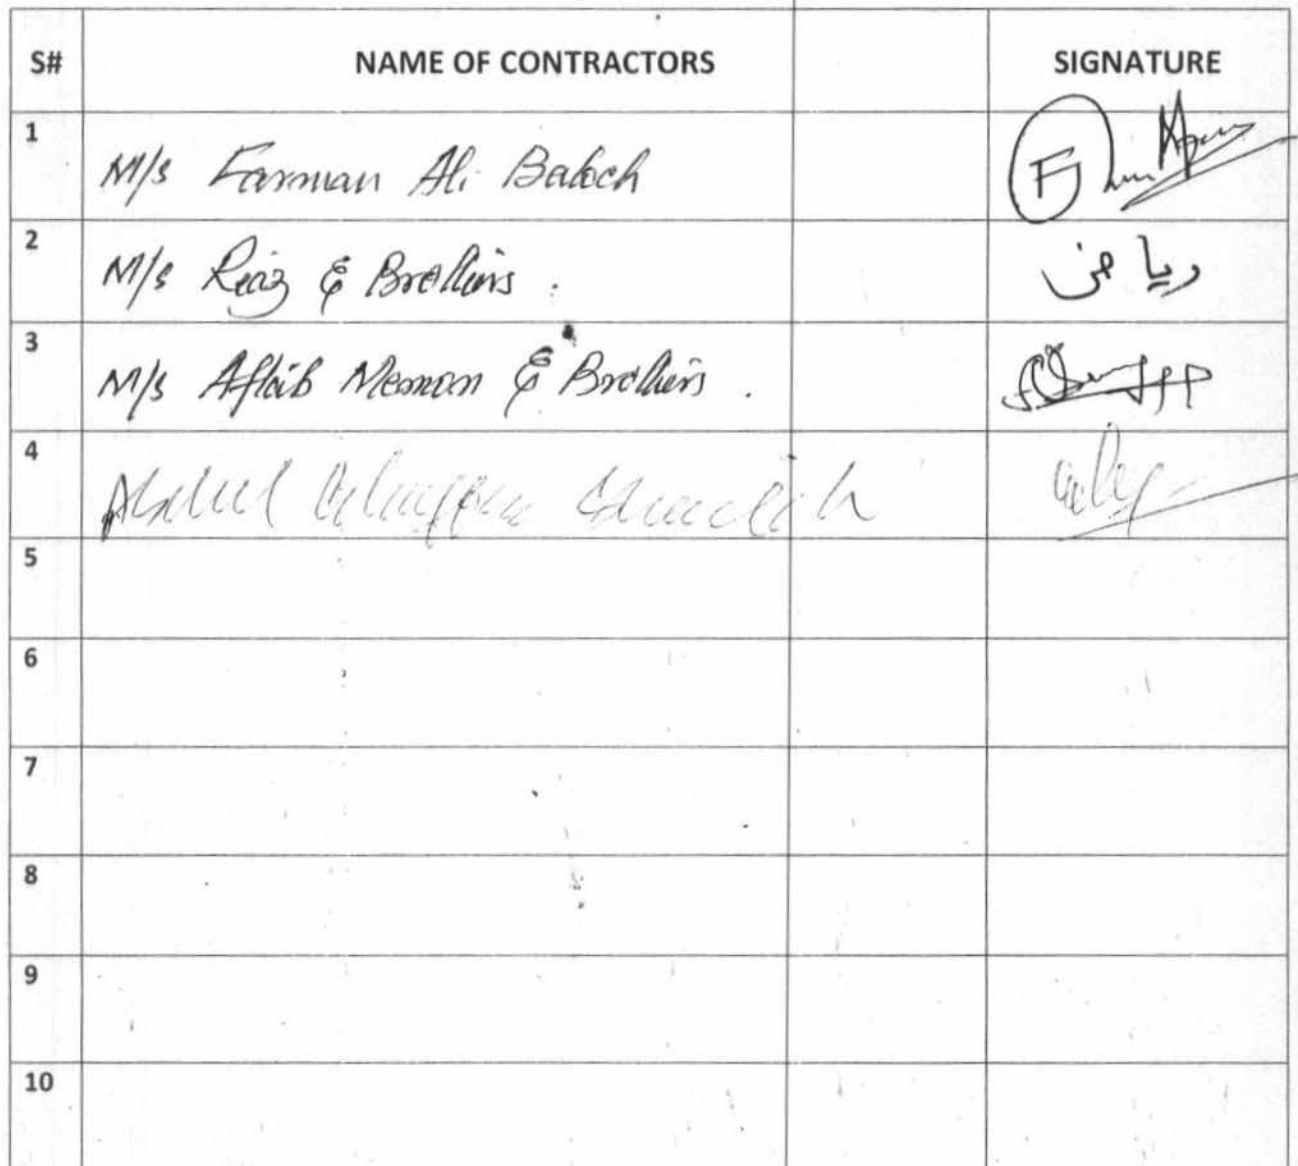 S# NAME OF CONTRACTORS SIGNATURE
1 M/s Farman Ali Baloch
2 M/s Riaz & Brothers . رياض
3 M/s Aftab Memon & Brothers .
4 Abdul Ghaffar
5
6
7
8
9
10